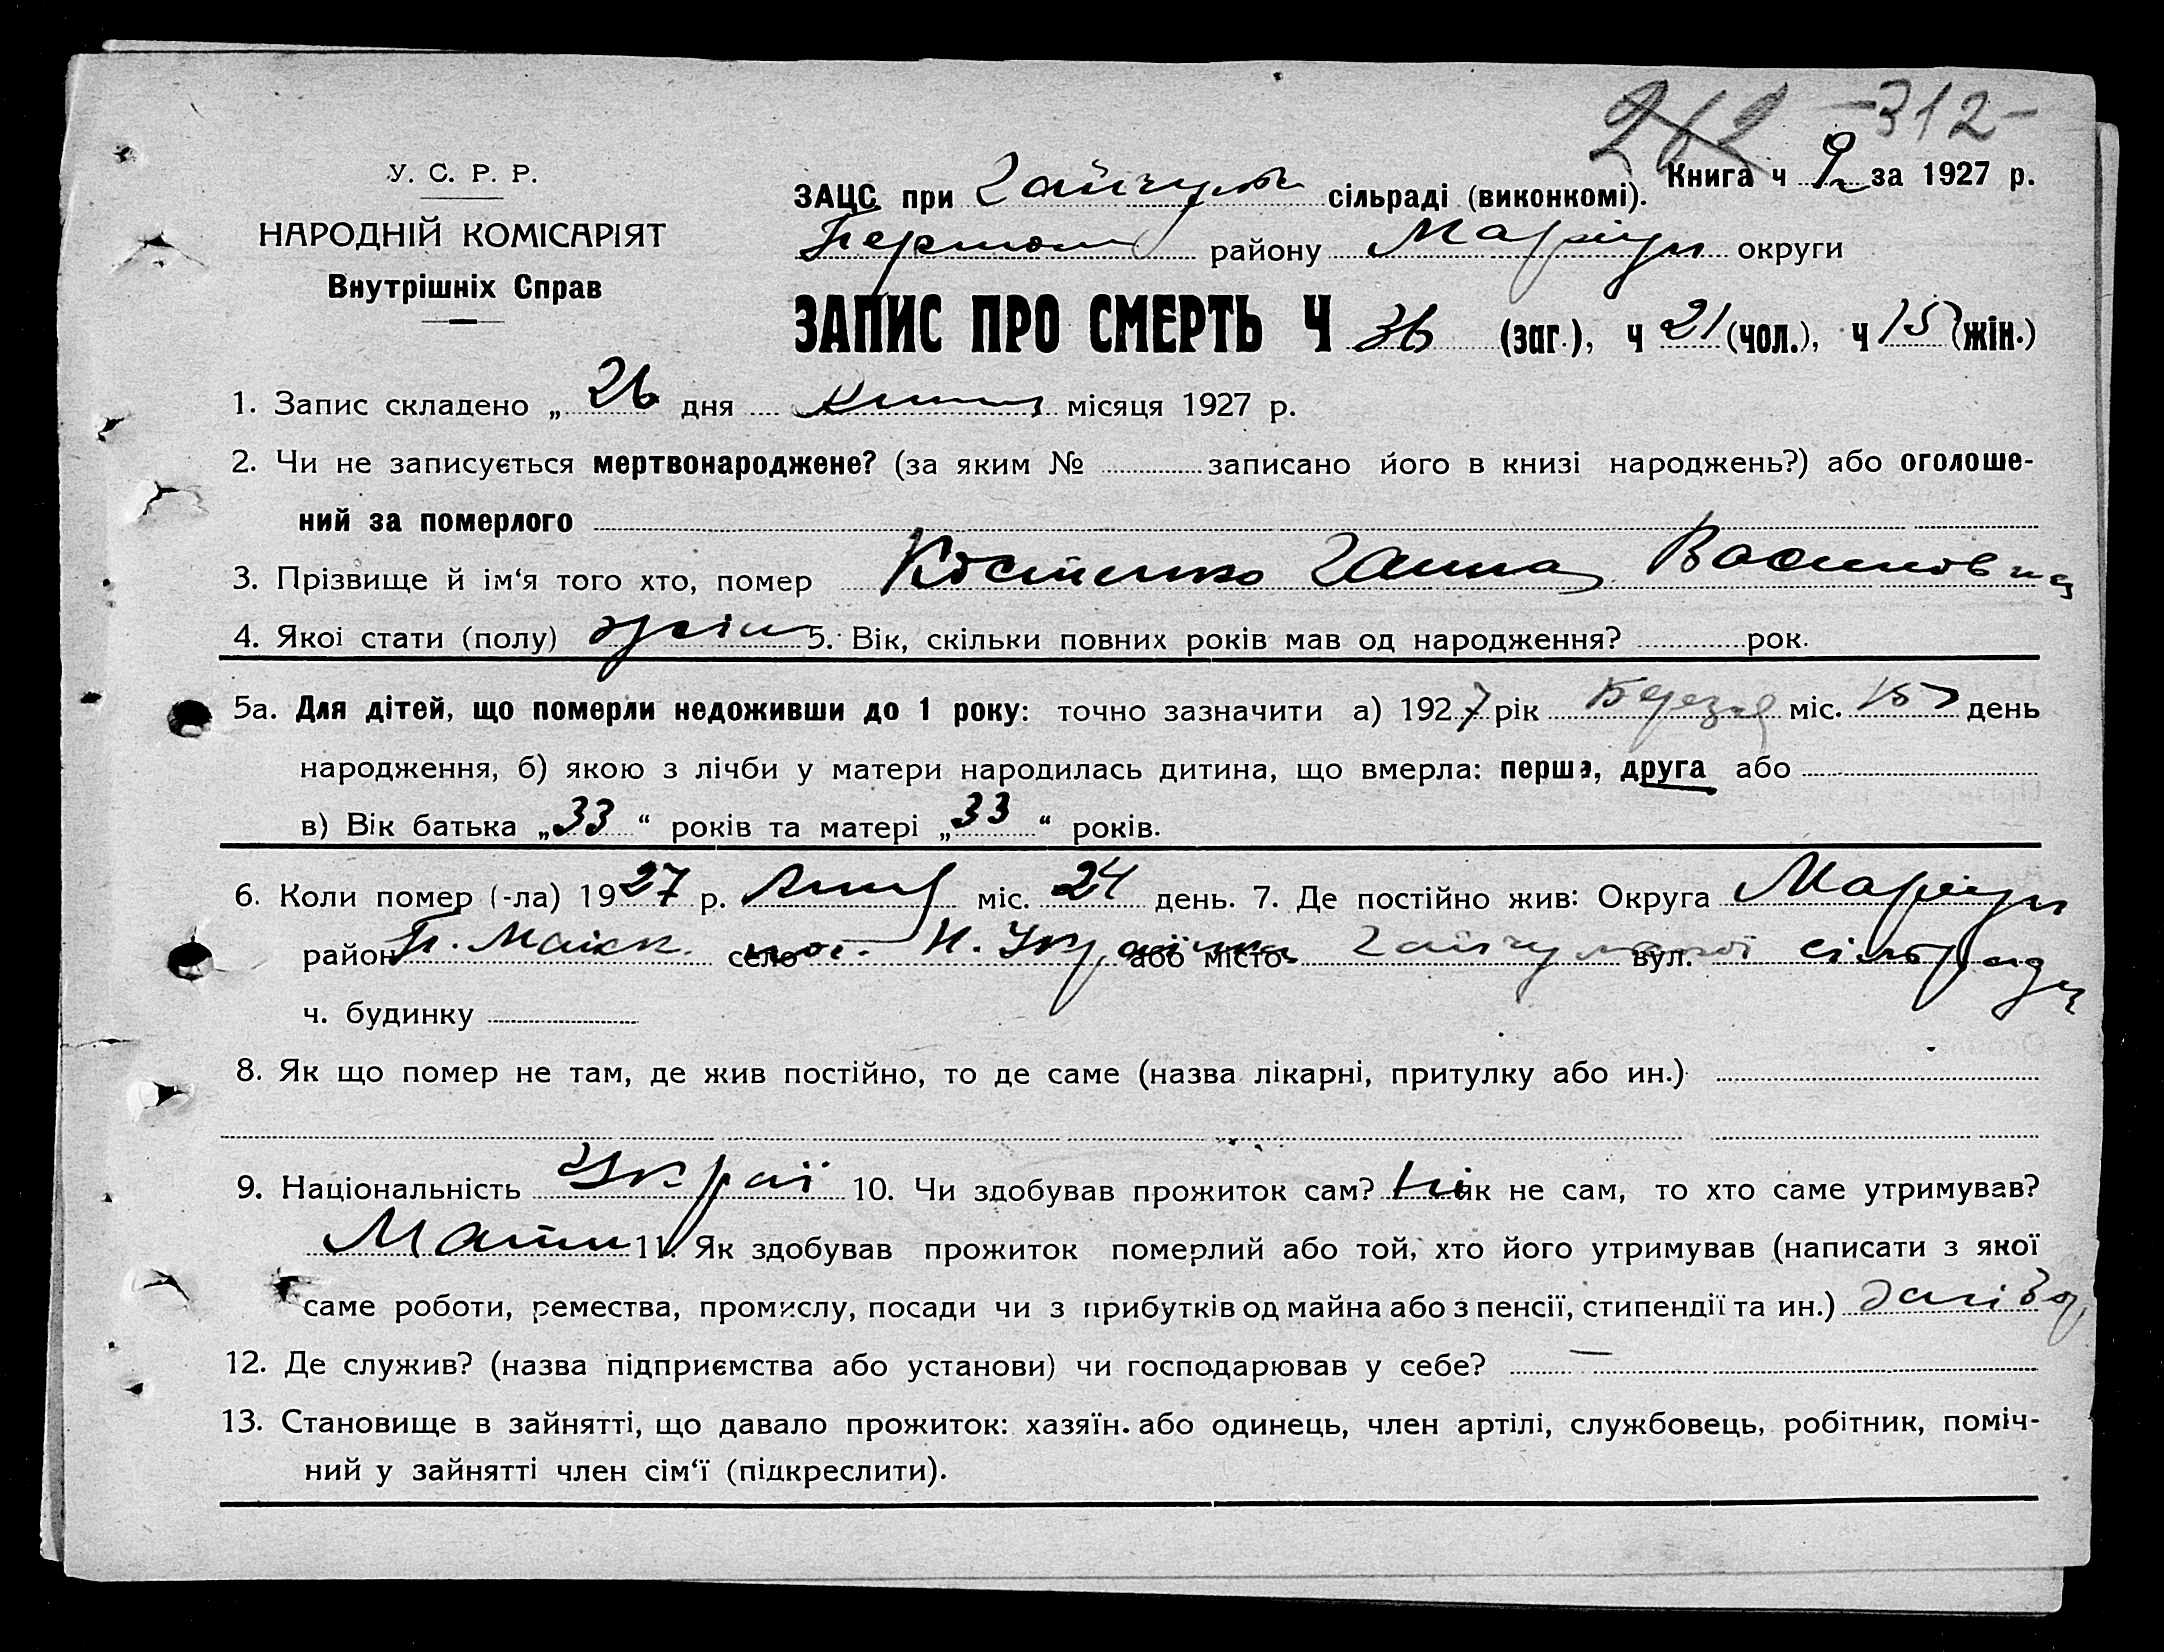 262 -312-
У. С. Р. Р.
НАРОДНІЙ КОМІСАРІЯТ
Внутрішніх Справ
Книга ч 2 за 1927 р.
ЗАЦС при Гайчул сільраді (виконкомі).
району Маріуп округи
ЗАПИС ПРО СМЕРТЬ Ч 36 (заг.), ч 21 (чол.), ч 15 (жін.)
1. Запис складено „ 26 дня місяця 1927 р.
2. Чи не записується мертвонароджене? (за яким № записано його в книзі народжень?) або оголоше-
ний за померлого
3. Прізвище й ім‘я того хто, помер Костенко Ганна Василовна
4. Якоі стати (полу) жін 5. Вік, скільки повних років мав од народження? рок.
5а. Для дітей, що померли недоживши до 1 року: точно зазначити а) 1927 рік Березня міс. 15 день
народження, б) якою з лічби у матери народилась дитина, що вмерла: перша, друга або
в) Вік батька „33“ років та матері „33“ років.
6. Коли помер (-ла) 1927 р. міс. 24 день. 7. Де постійно жив: Округа Маріуп
район П. Майск. село пос. Н. Українка або місто Гайчульської вул. сільради
ч. будинку
8. Як що помер не там, де жив постійно, то де саме (назва лікарні, притулку або ин.)
9. Національність Украї 10. Чи здобував прожиток сам? Ні як не сам, то хто саме утримував?
Мати 11. Як здобував прожиток померлий або той, хто його утримував (написати з якої
саме роботи, ремества, промислу, посади чи з прибутків од майна або з пенсії, стипендії та ин.)
12. Де служив? (назва підприємства або установи) чи господарював у себе? —
13. Становище в зайнятті, що давало прожиток: хазяїн. або одинець, член артілі, службовець, робітник, поміч-
ний у зайнятті член сім‘ї (підкреслити).